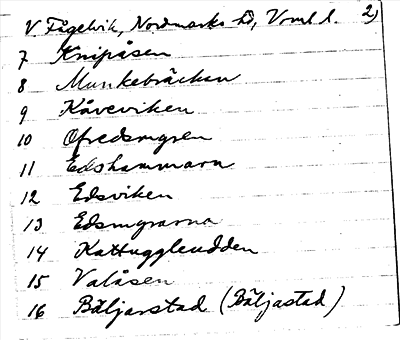 V Fågelvik, Nordmarks hd, Vrml l. 2)
7 Knipåsen
8 Munkebäcken
9 Kåveviken
10 Ofredsmyren
11 Edshammarn
12 Edsviken
13 Edsmyrarna
14 Kattuggleudden
15 Valåsen
16 Bäljarstad (Bäljastad)